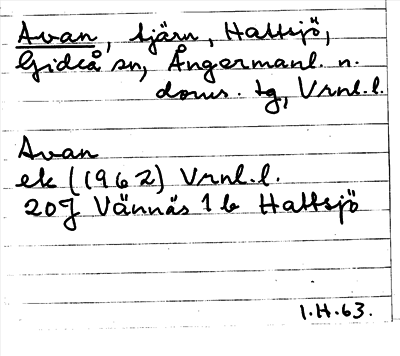 Avan, tjärn, Hattsjö,
Gideå sn, Ångermanl. n.
doms. tg, Vrnl.l.
Avan
ek (1962) Vrnl.l.
20J Vännäs 1b Hattsjö
1.H.63.